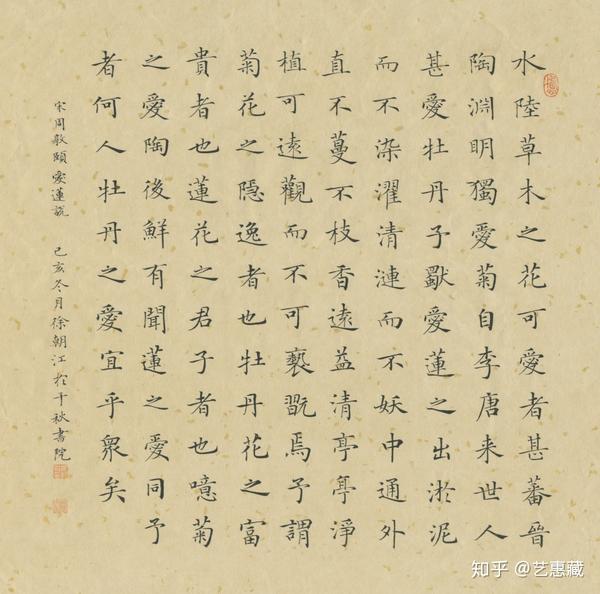 水陸草木之花可愛者甚蕃晉
陶淵明獨愛菊自李唐来世人
甚愛牡丹予獨愛蓮之出淤泥
而不染濯清漣而不妖中通外
直不蔓不枝香遠益清亭亭淨
植可遠觀而不可褻翫焉予謂
菊花之隱逸者也牡丹花之富
貴者也蓮花之君子者也噫菊
之愛陶後鮮有聞蓮之愛同予
者何人牡丹之愛宜乎衆矣
宋周敦頤愛蓮說 己亥冬月徐朝江於千秋書院
知乎 @艺惠藏